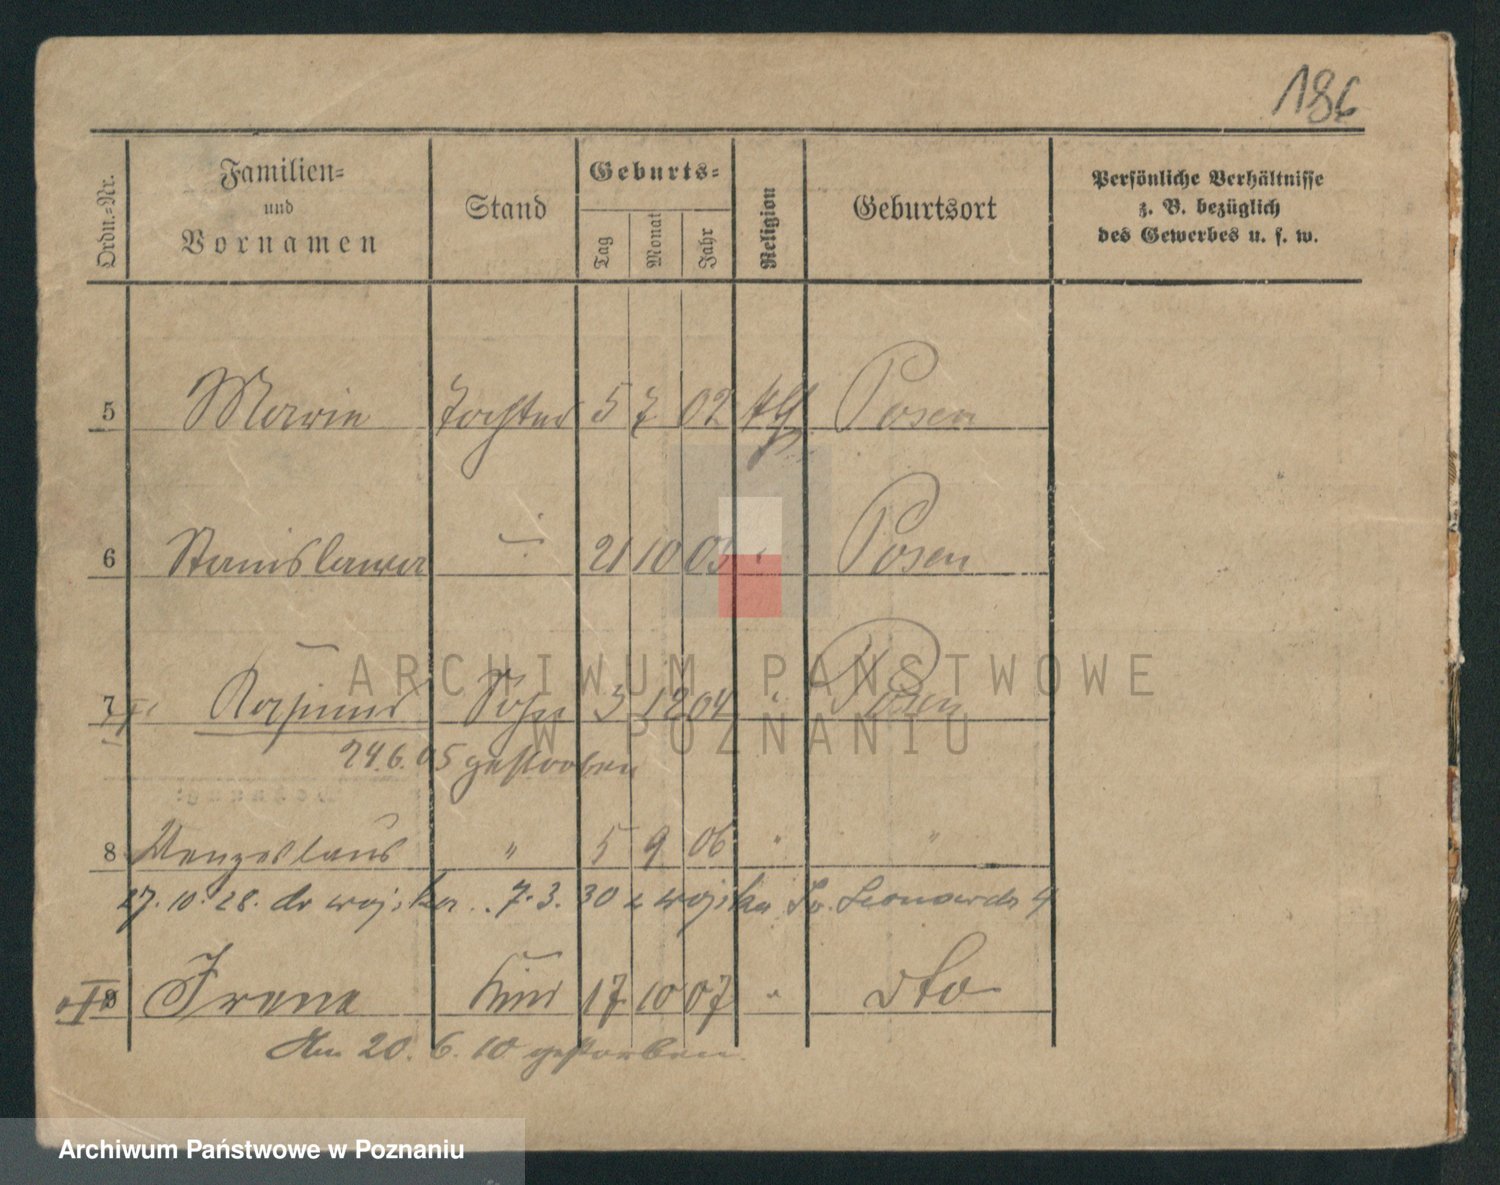 186
Ordn.=Nr.
Familien=
und
Vornamen
Stand
Geburts=
Tag
Monat
Jahr
Religion
Geburtsort
Persönliche Verhältnisse
z. B. bezüglich
des Gewerbes u. s. w.
5 Marie Tochter 5 7 02 kth Posen
6 Stanislawa " 21 10 03 " Posen
7 Kasimir Sohn 3 12 04 " Posen
24.6.05 gestorben
8 Wenzeslaus " 5 9 06 " "
27.10.28. do wojska. 7.3.30 z wojska Św. Leonarda 4
9 Irene Kind 17 10 07 " dto
Am 20. 6. 10 gestorben.
ARCHIWUM PAŃSTWOWE
W POZNANIU
Archiwum Państwowe w Poznaniu